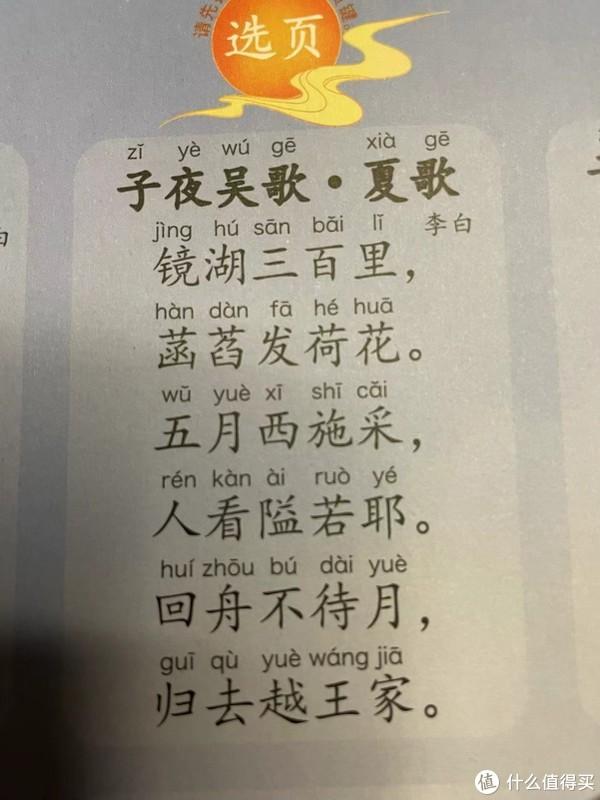 请先
键。
选页
zǐ yè wú gē xià gē
子夜吴歌·夏歌
李白
jìng hú sān bǎi lǐ
镜湖三百里，
hàn dàn fā hé huā
菡萏发荷花。
wǔ yuè xī shī cǎi
五月西施采，
rén kàn ài ruò yé
人看隘若耶。
huí zhōu bú dài yuè
回舟不待月，
guī qù yuè wáng jiā
归去越王家。
白
值 什么值得买